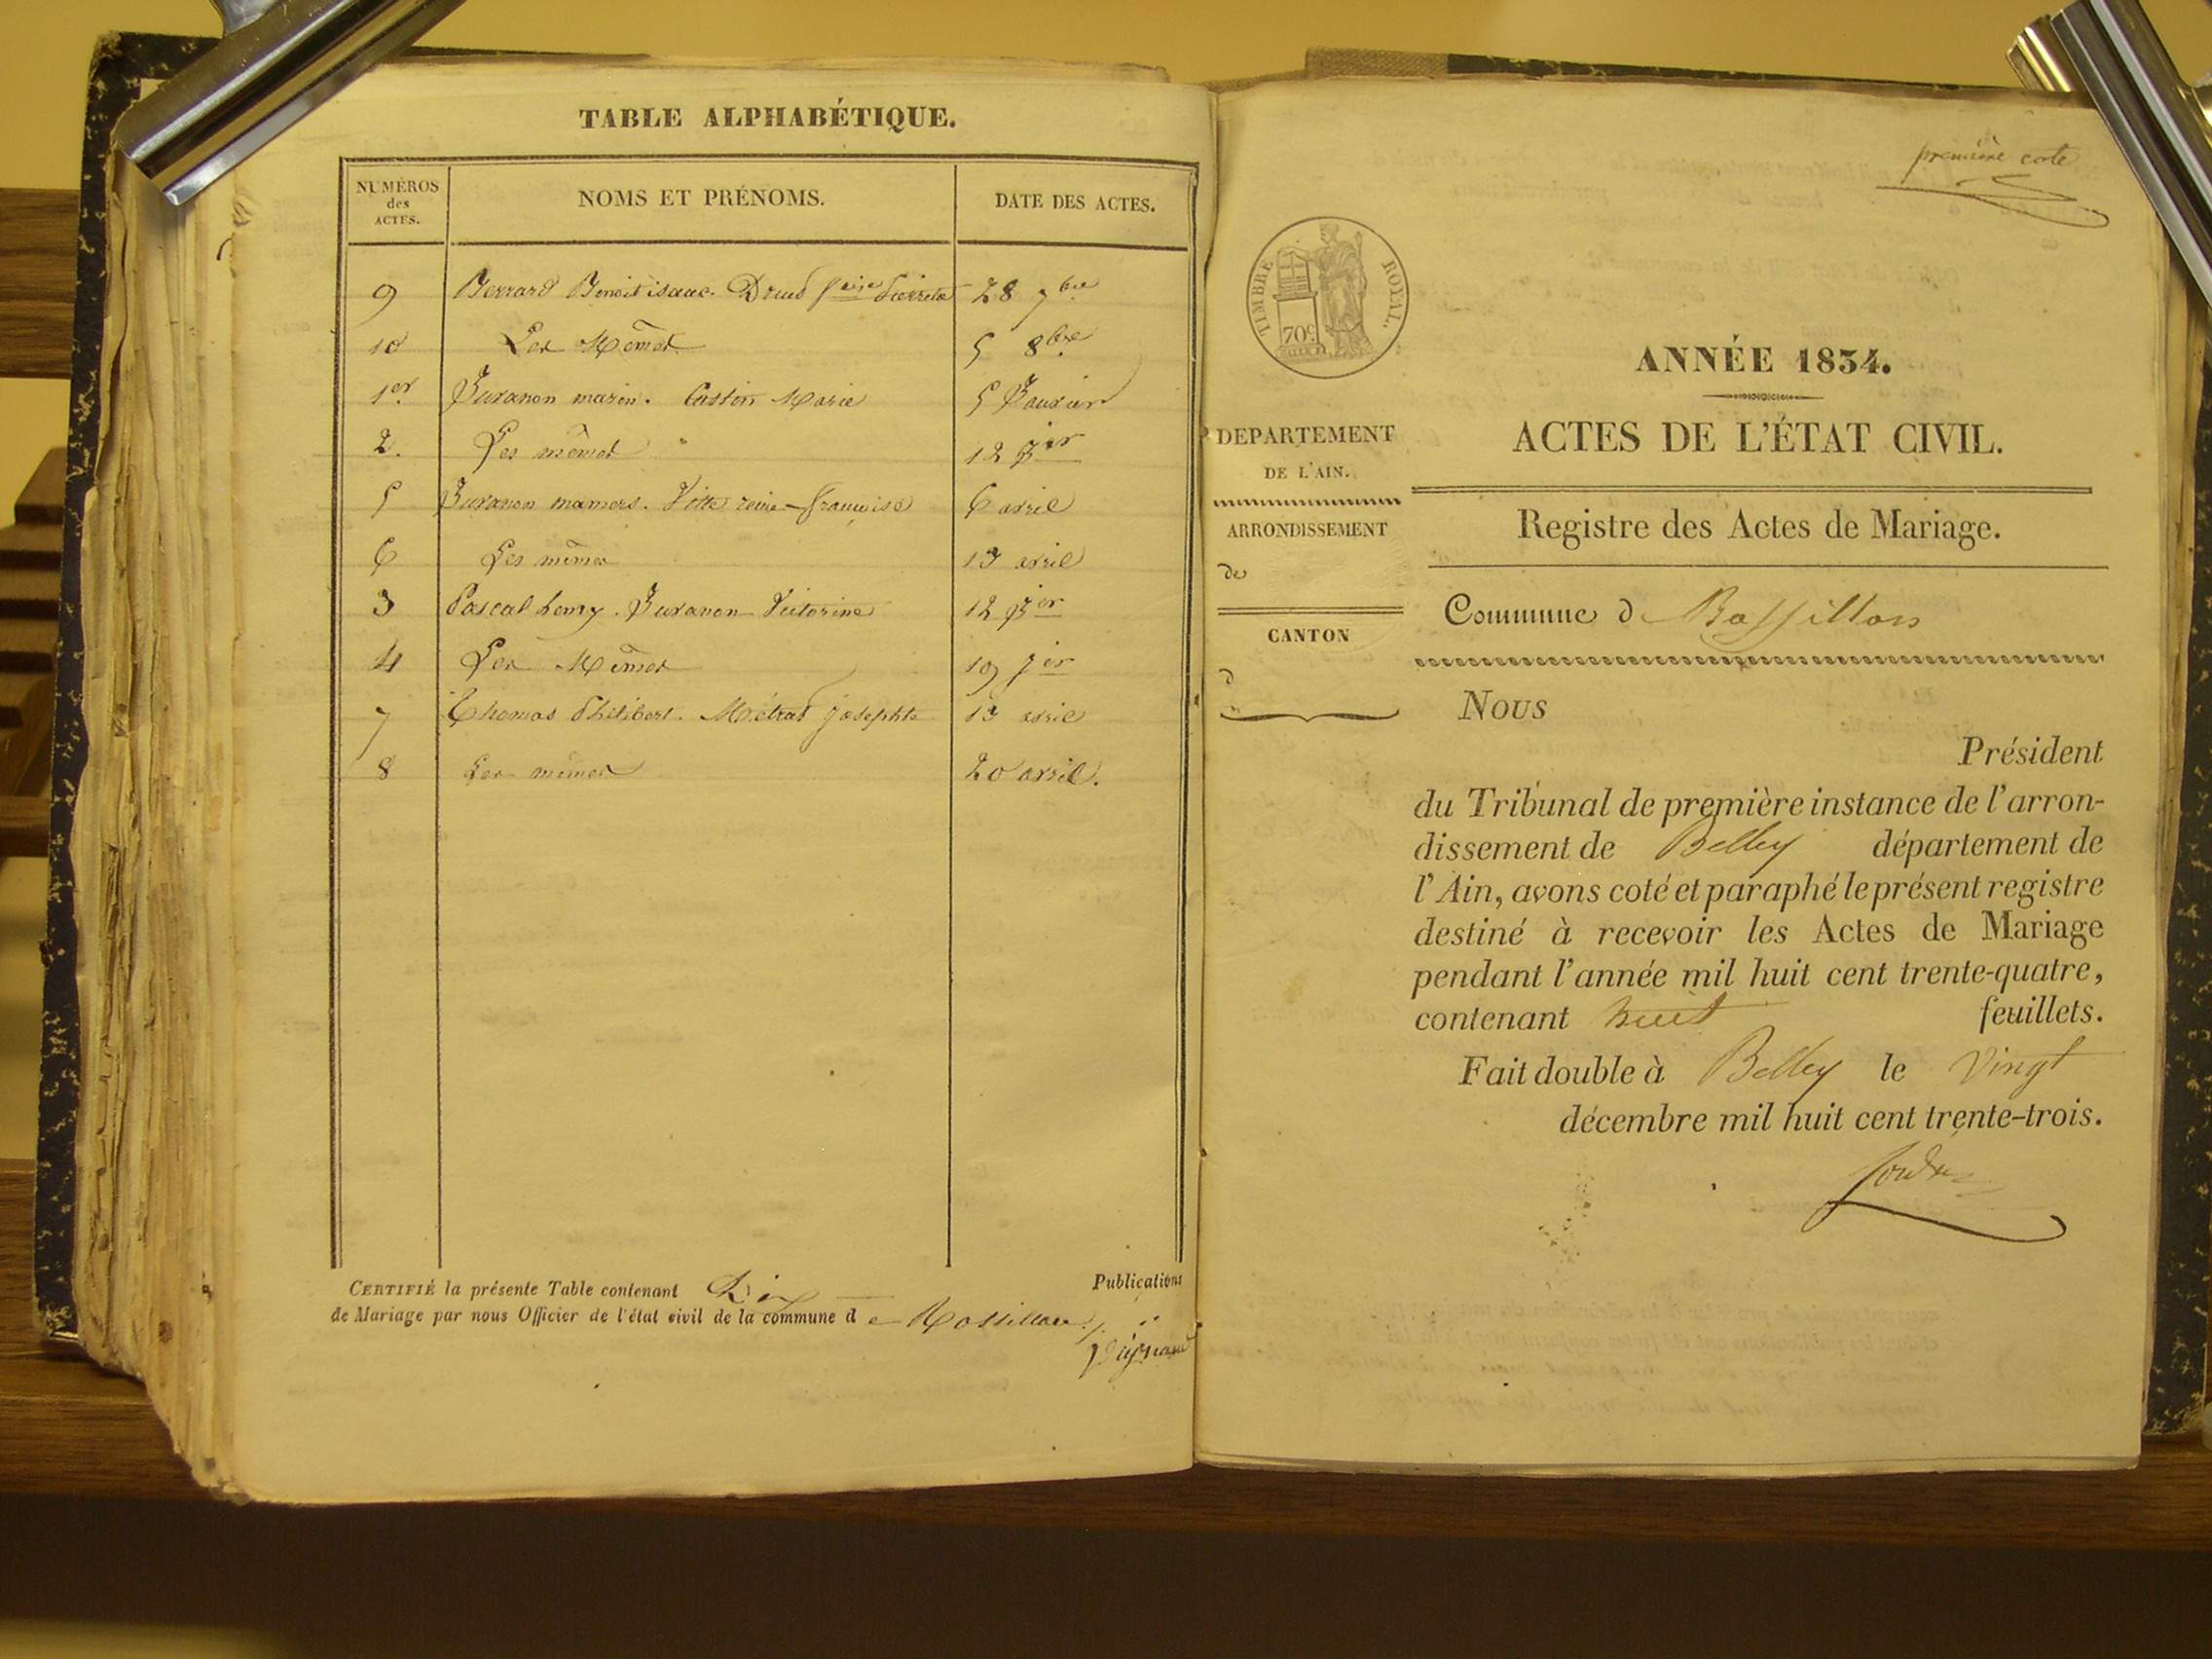 TABLE ALPHABÉTIQUE.
NUMÉROS
des
ACTES.
NOMS ET PRÉNOMS.
DATE DES ACTES.
9 Berrard Benoit isaac. Drued Pierrete 28 7bre
10 Les Mêmes 5 8bre
1er Juvanon marin. Caston Marie 5 Janvier
2. Les mêmes " 12 Jer
5 Juvanon mamers. Vitte reine françoise 6 avril
6 Les mêmes 13 avril
3 Pascal henry. Juvanon Victorine 12 Jer
4 Les Mêmes 19 Jer
7 Thomas Philibert. Métras josephte 13 avril
8 Les mêmes 20 avril.
CERTIFIÉ la présente Table contenant Dix Publications
de Mariage par nous Officier de l'état civil de la commune d e Rossillon
première cote
TIMBRE ROYAL.
70c
ANNÉE 1834.
ACTES DE L'ÉTAT CIVIL.
DEPARTEMENT
DE L'AIN.
ARRONDISSEMENT
de
CANTON
d
Registre des Actes de Mariage.
Commune de Rossillon
Nous
Président
du Tribunal de première instance de l'arron-
dissement de Belley département de
l'Ain, avons coté et paraphé le présent registre
destiné à recevoir les Actes de Mariage
pendant l'année mil huit cent trente-quatre,
contenant huit feuillets.
Fait double à Belley le vingt
décembre mil huit cent trente-trois.